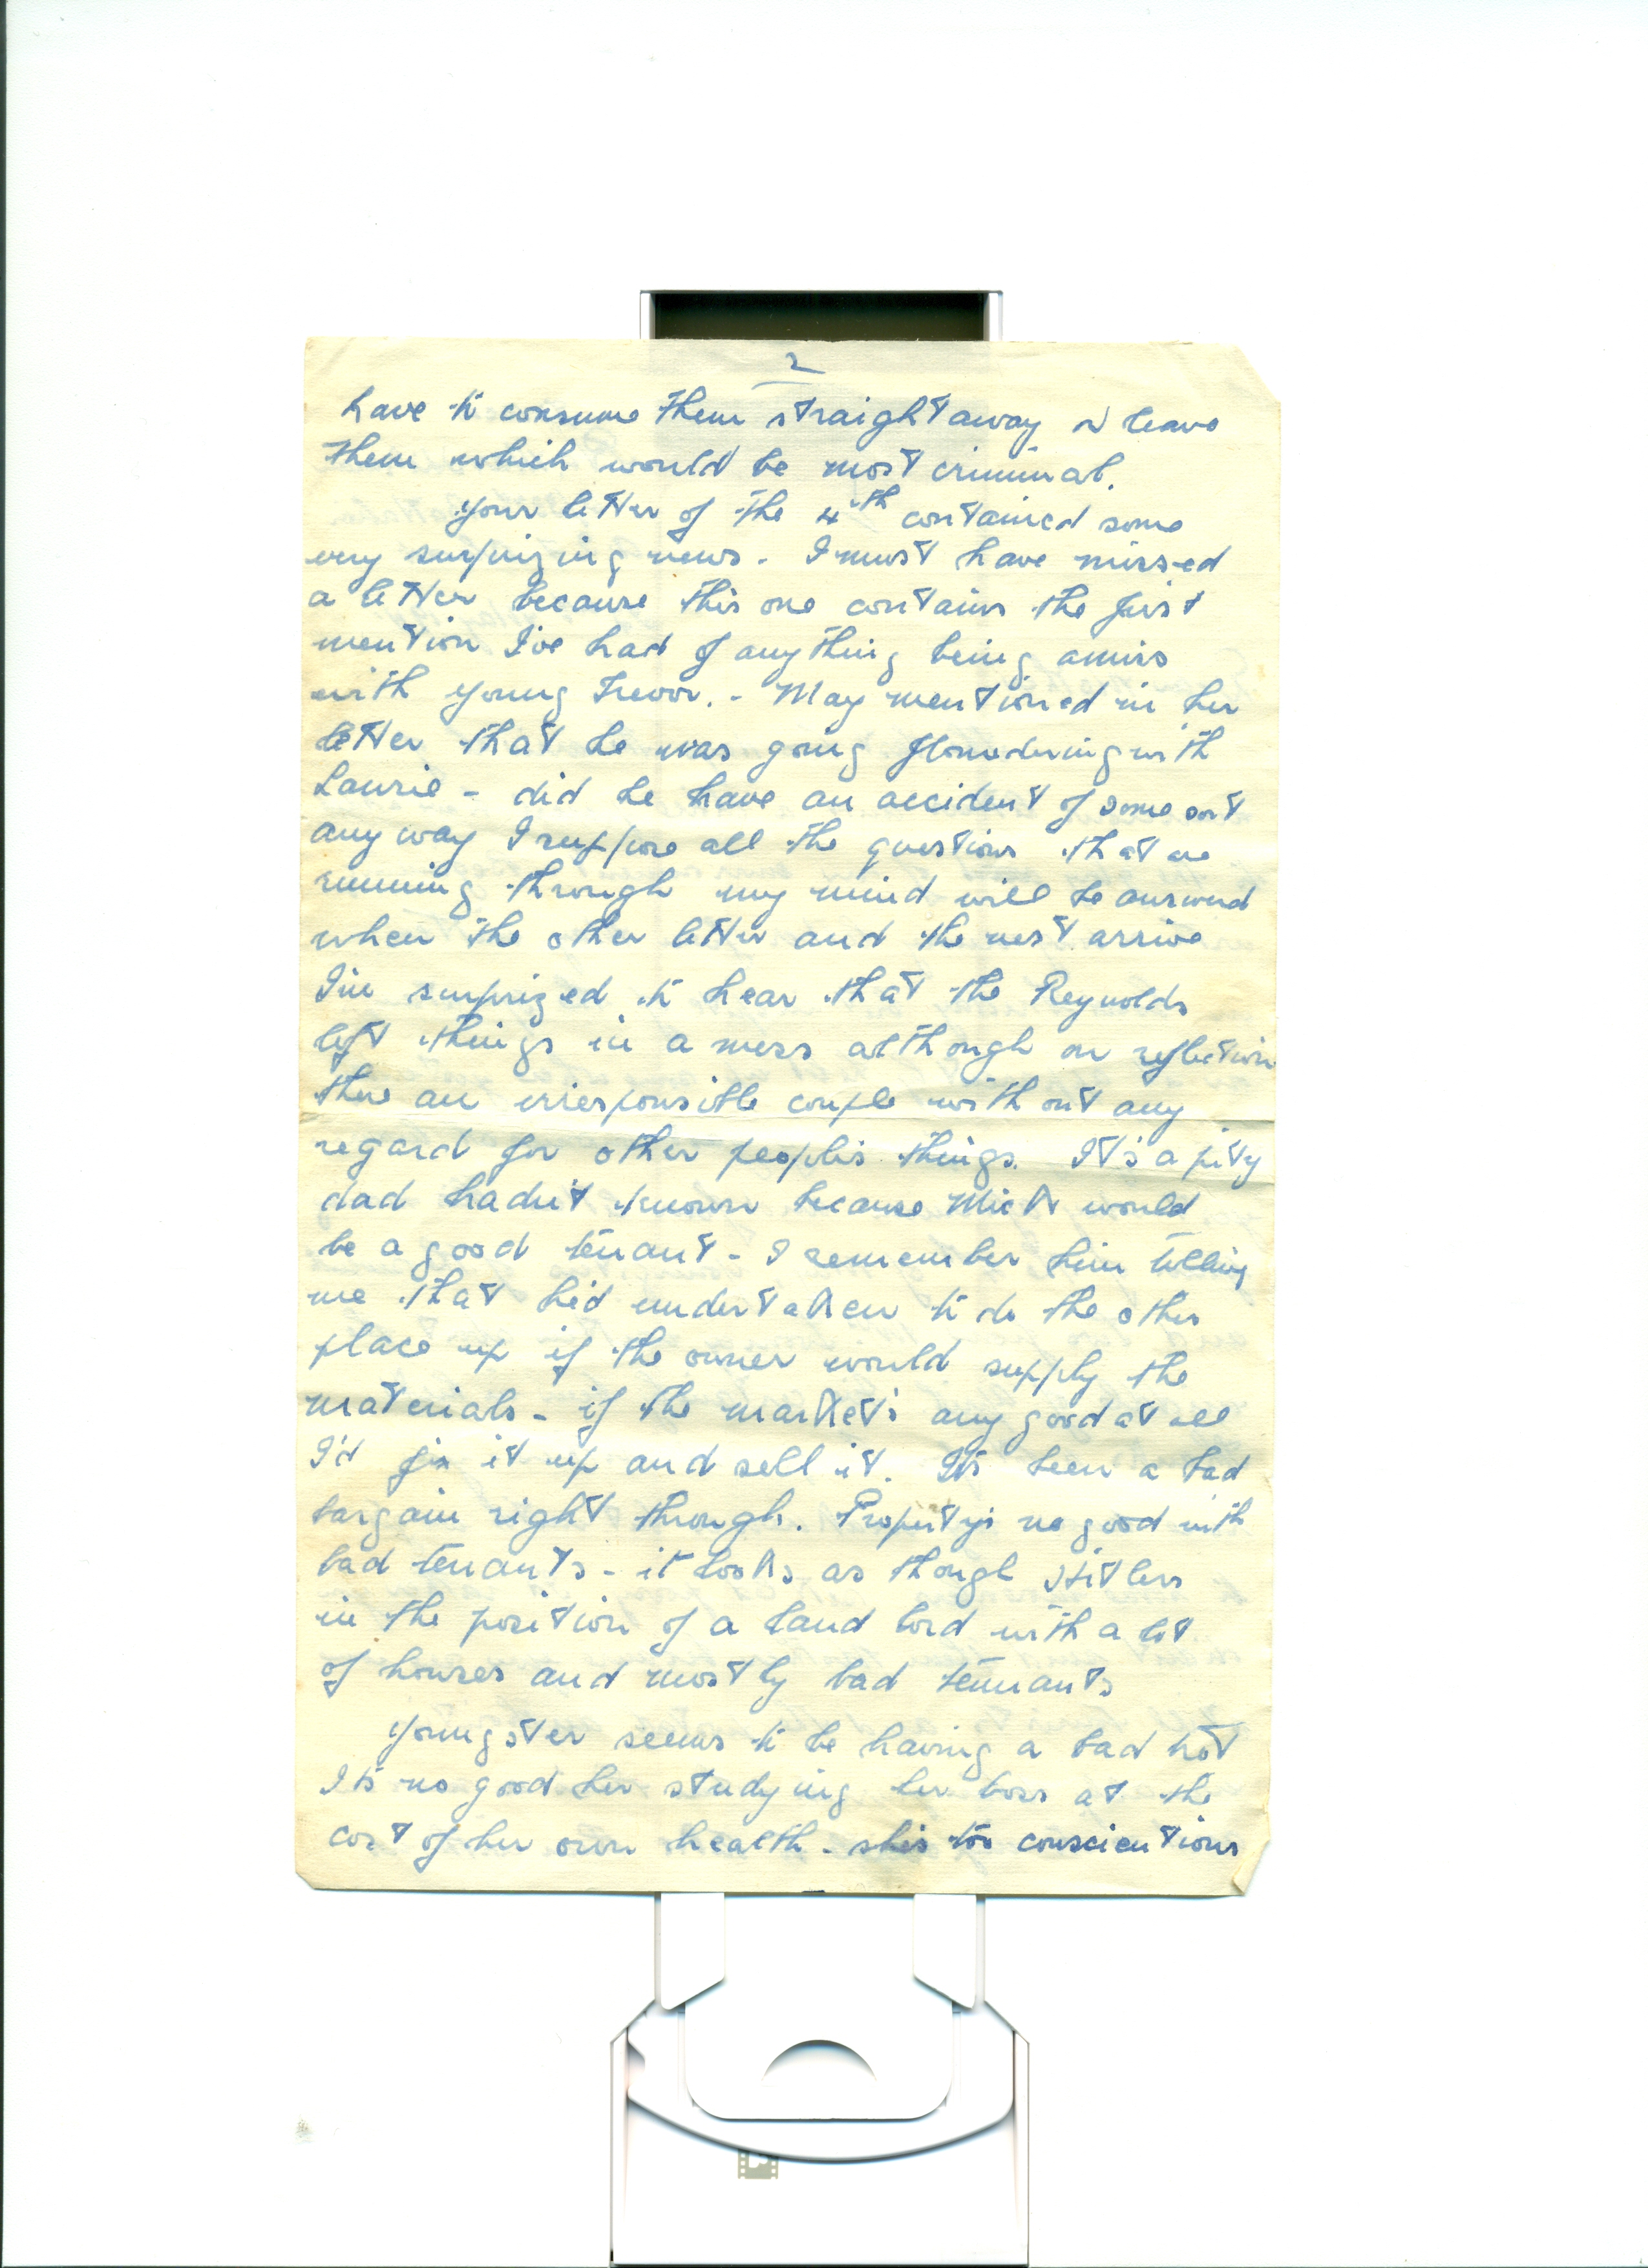 2
have to consume them straight away or leave
them which would be most criminal.
Your letter of the 4th contained some
very surprizing news - I must have missed
a letter because this one contains the first
mention I've had of anything being amiss
with young Trevor. - May mentioned in her
letter that he was going floundering with
Laurie - did he have an accident of some sort
any way I suppose all the questions that are
running through my mind will be answered
when the other letter and the rest arrive
I'm surprized to hear that the Reynolds
left things in a mess although on reflection
there an irresponsible couple without any
regard for other people's things. It's a pity
dad hadn't known because Mick would
be a good tenant - I remember him telling
me that he'd undertaken to do the other
place up if the owner would supply the
materials - if the market's any good at all
I'd fix it up and sell it. It's been a bad
bargain right through. Property's no good with
bad tenants - it looks as though Hitlers
in the position of a land lord with a lot
of houses and mostly bad tennants
Youngster seems to be having a bad trot
It's no good her studying her boss at the
cost of her own health - she's too conscientious